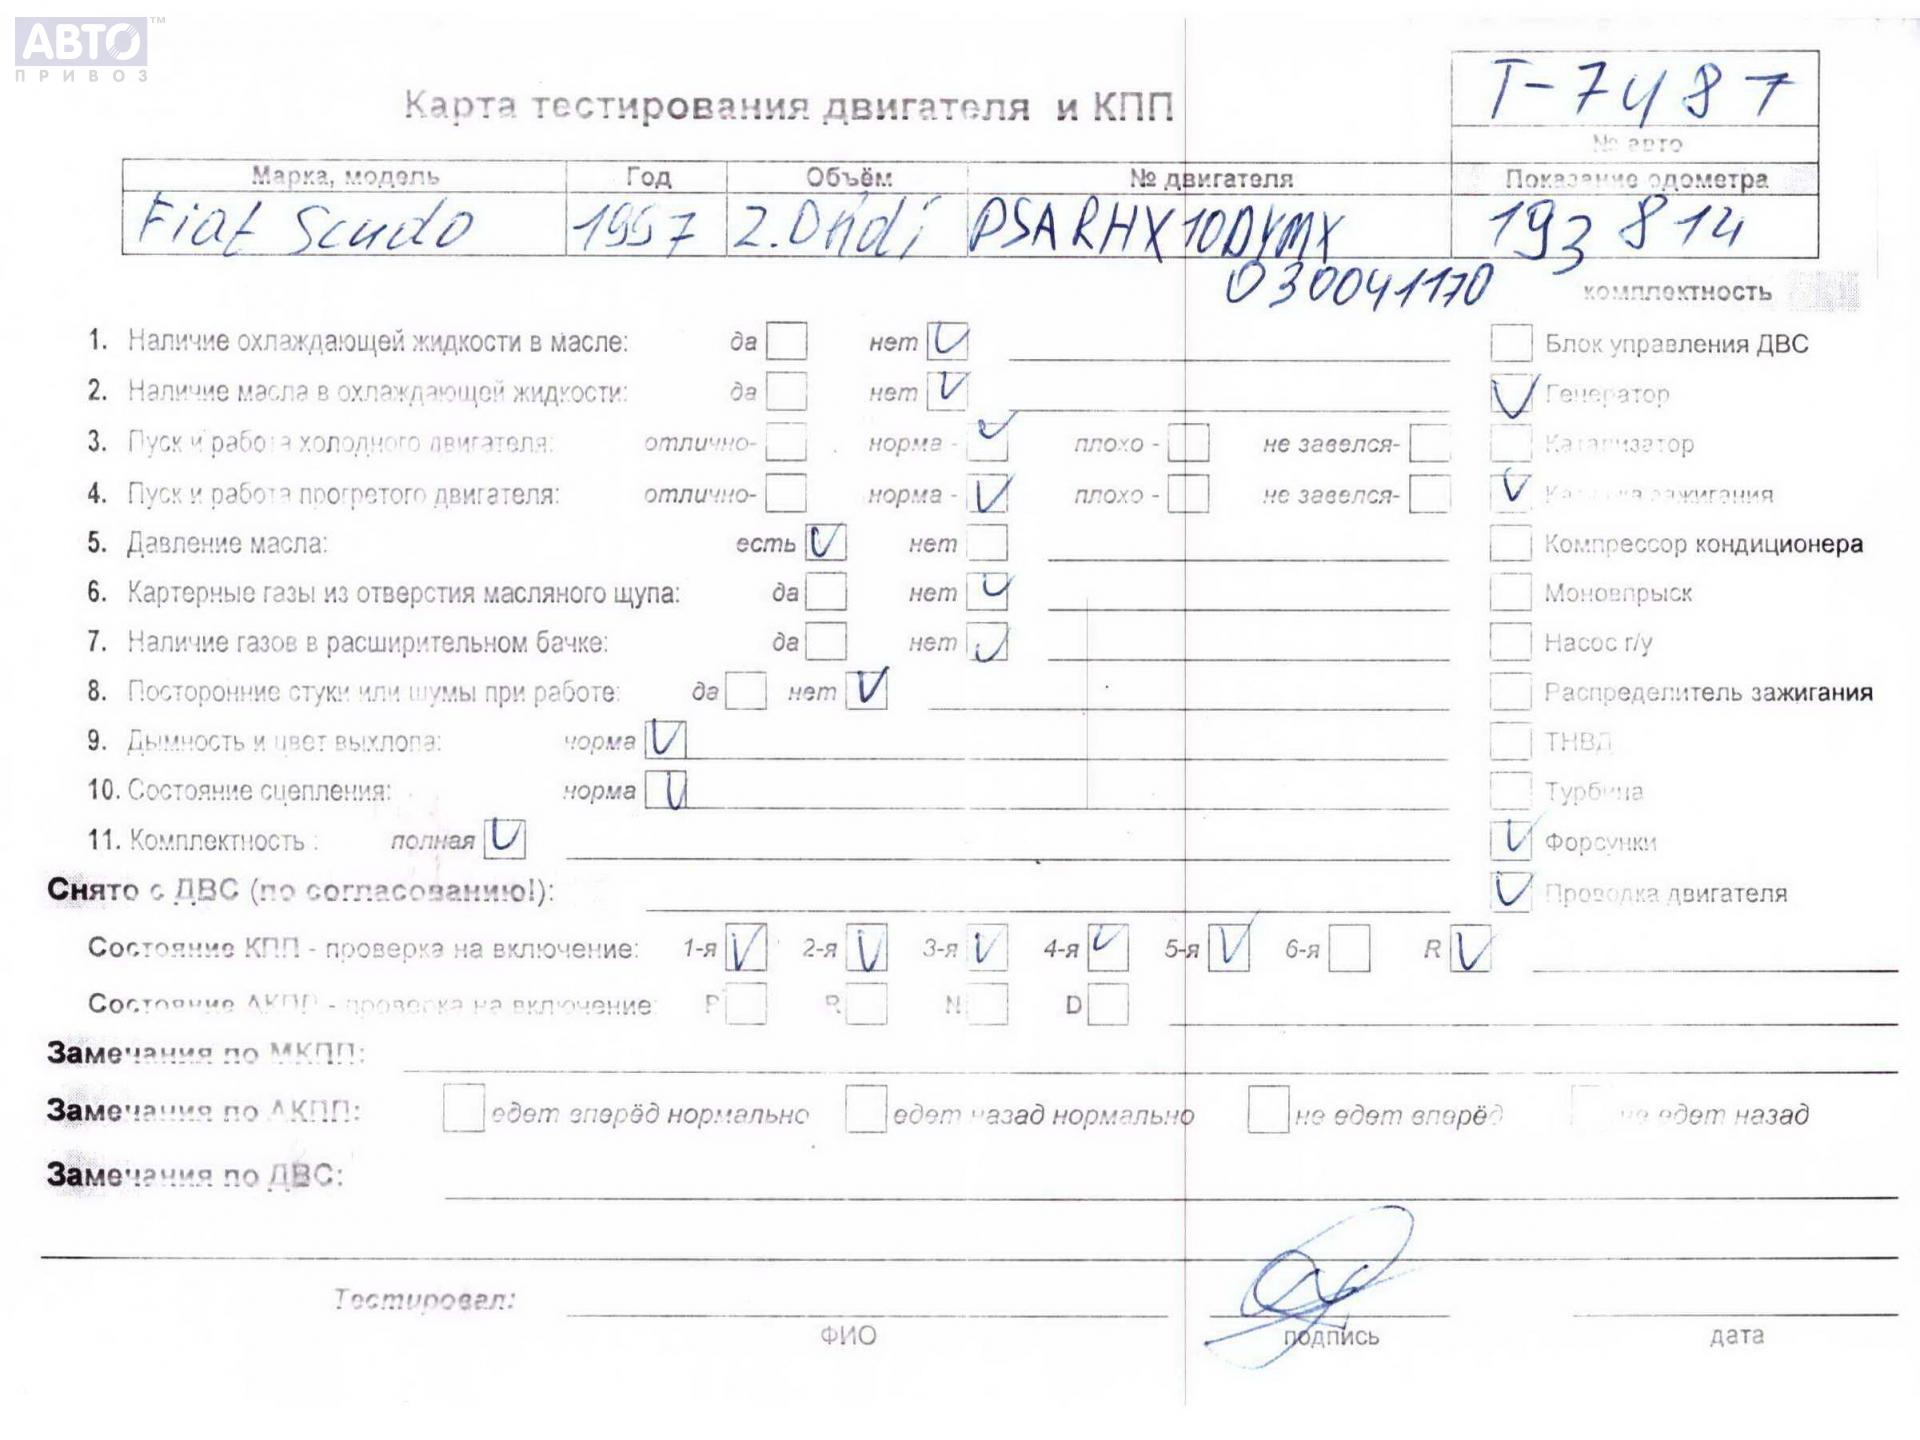 АВТО™
ПРИВОЗ
Карта тестирования двигателя и КПП
Т-7487
№ авто
Марка, модель Год Объём № двигателя Показание одометра
Fiat Scudo 1997 2.0hdi PSA RHX 10DYMX 193 814
030041170
комплектность
1. Наличие охлаждающей жидкости в масле: да нет Блок управления ДВС
2. Наличие масла в охлаждающей жидкости: да нет Генератор
3. Пуск и работа холодного двигателя: отлично- норма - плохо - не завелся- Катализатор
4. Пуск и работа прогретого двигателя: отлично- норма - плохо - не завелся- Катушка зажигания
5. Давление масла: есть нет Компрессор кондиционера
6. Картерные газы из отверстия масляного щупа: да нет Моновпрыск
7. Наличие газов в расширительном бачке: да нет Насос г/у
8. Посторонние стуки или шумы при работе: да нет Распределитель зажигания
9. Дымность и цвет выхлопа: норма ТНВД
10. Состояние сцепления: норма Турбина
11. Комплектность : полная Форсунки
Снято с ДВС (по согласованию!): Проводка двигателя
Состояние КПП - проверка на включение: 1-я 2-я 3-я 4-я 5-я 6-я R
Состояние АКПП - проверка на включение: P R N D
Замечания по МКПП:
Замечания по АКПП: едет вперёд нормально едет назад нормально не едет вперёд не едет назад
Замечания по ДВС:
Тестировал:
ФИО подпись дата